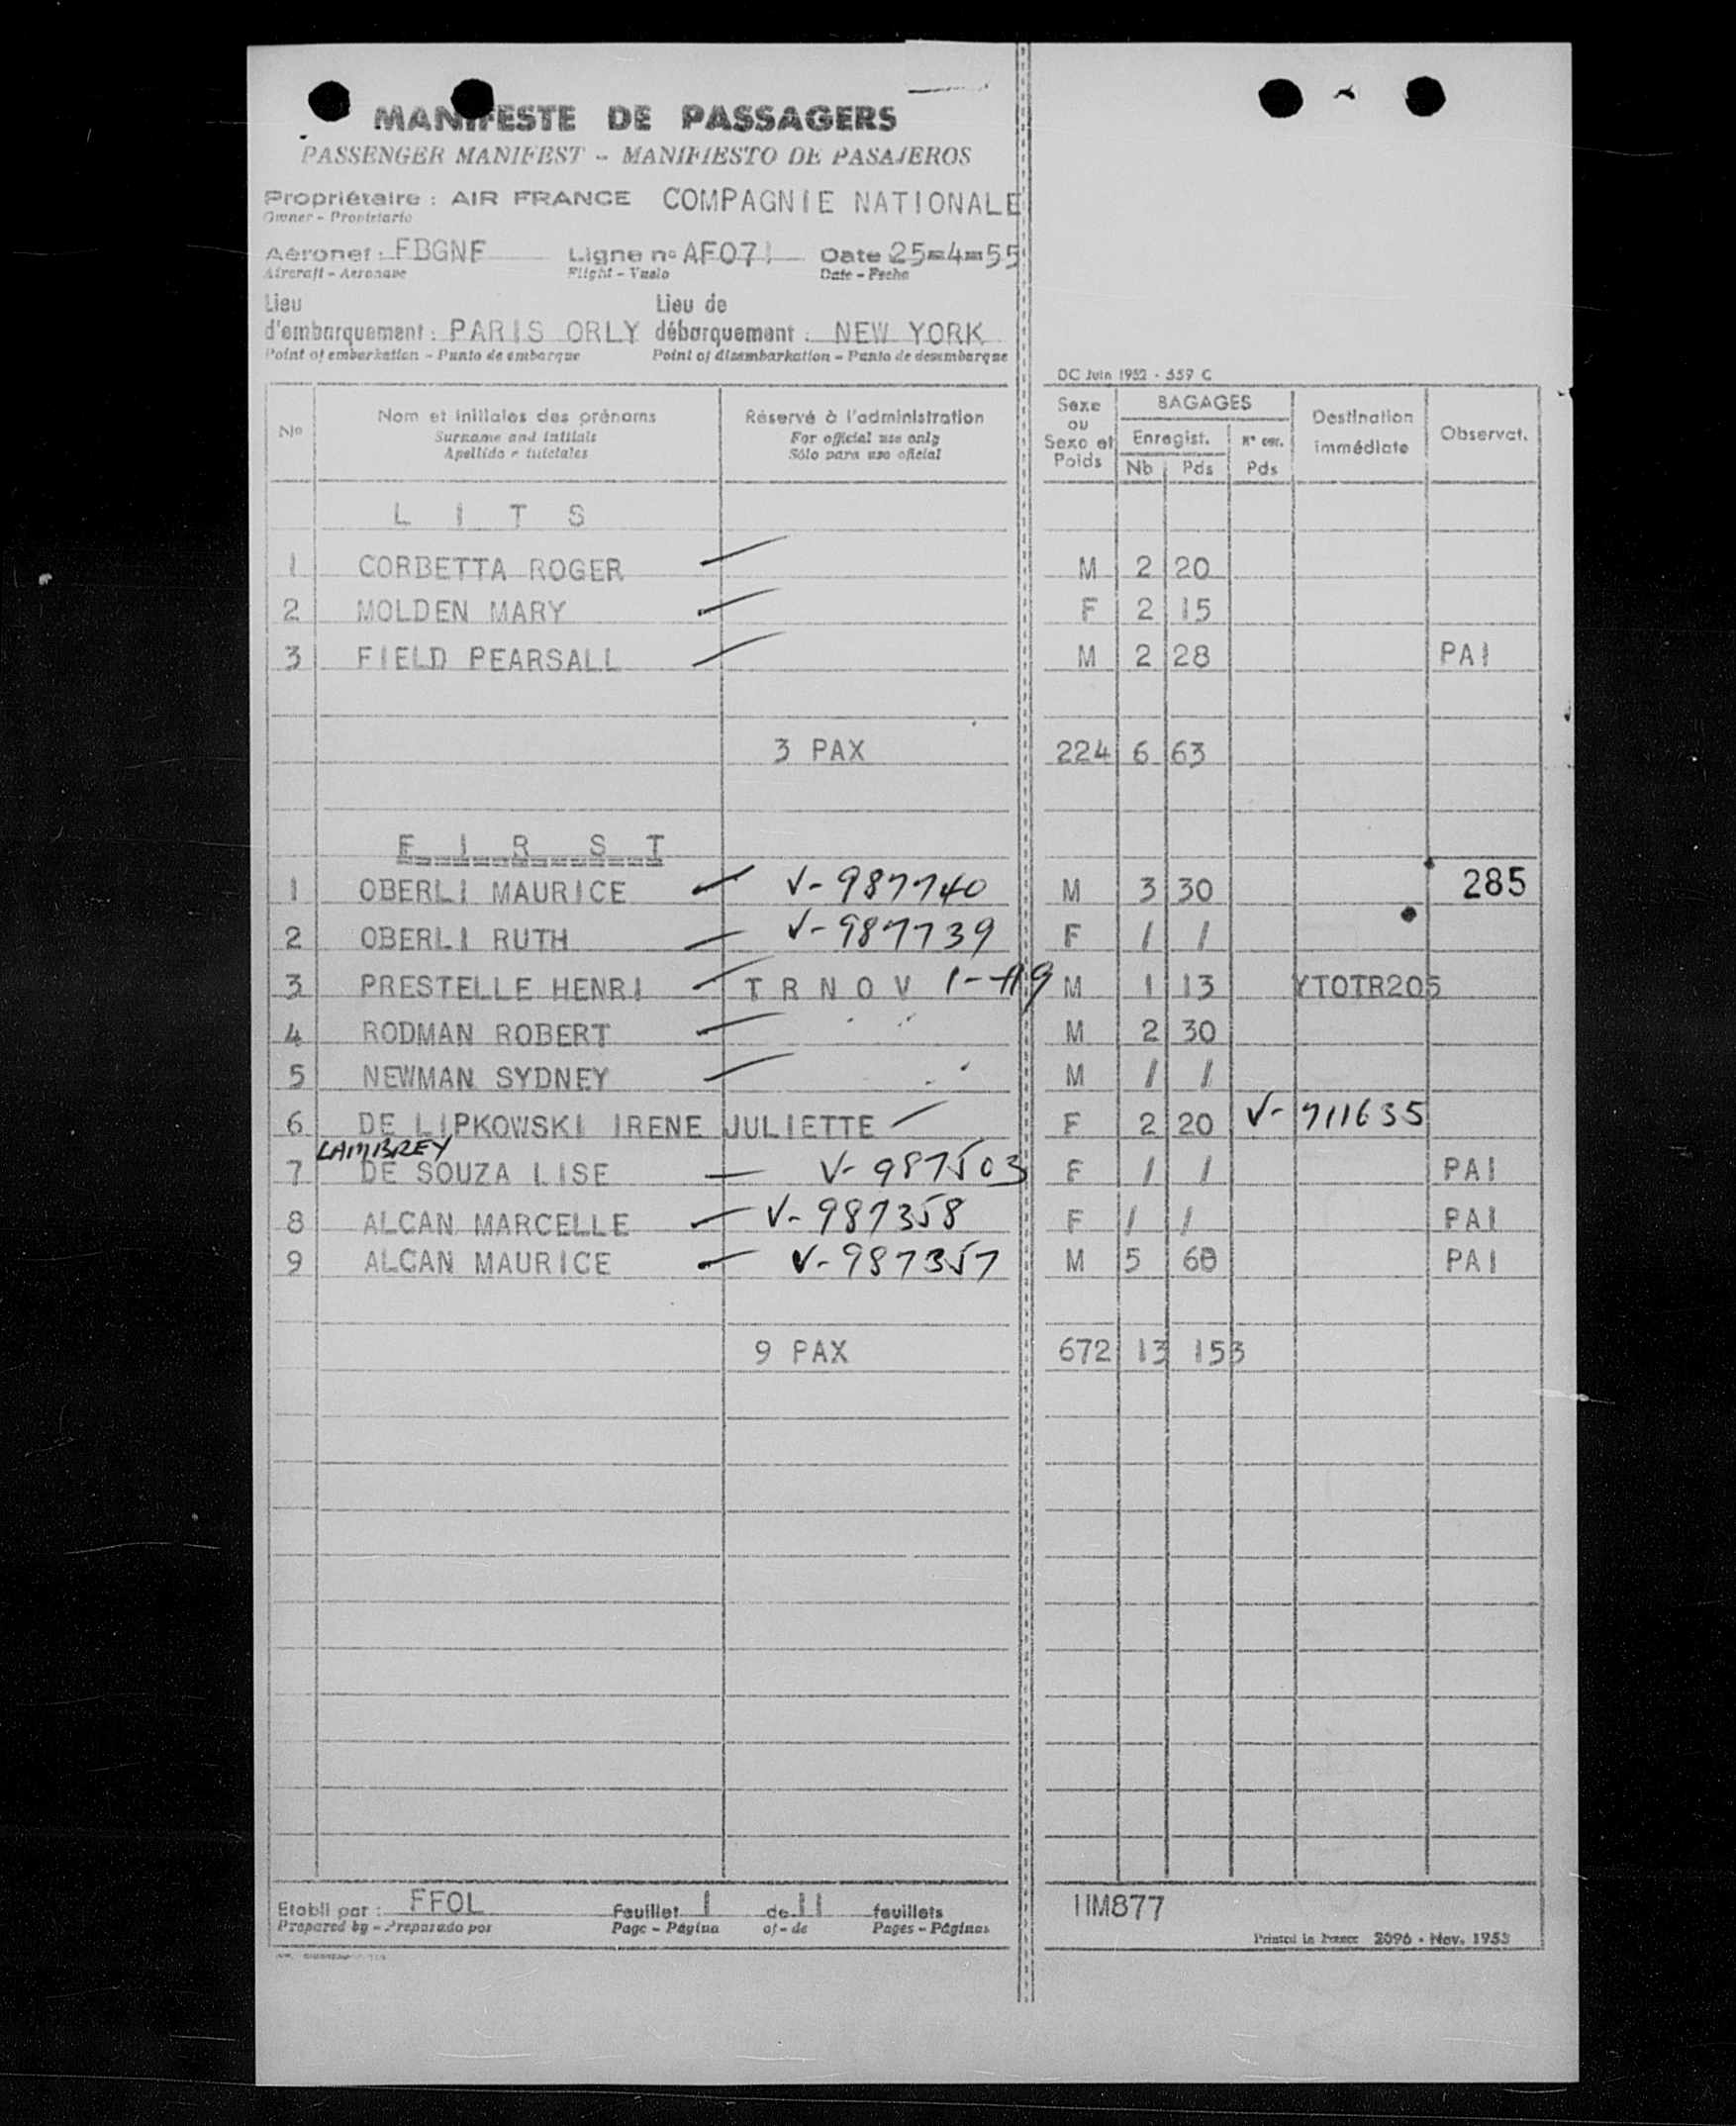 MANIFESTE DE PASSAGERS
PASSENGER MANIFEST - MANIFIESTO DE PASAJEROS
Propriétaire : AIR FRANCE COMPAGNIE NATIONALE
Owner - Propietario
Aéronef : FBGNF Ligne n° AF071 Date 25=4=55
Aircraft - Aeronave Flight - Vuelo Date - Fecha
Lieu Lieu de
d'embarquement : PARIS ORLY débarquement : NEW YORK
Point of embarkation - Punto de embarque Point of disembarkation - Punto de desembarque
DC Juin 1952 - 559 C
No Nom et initiales des prénoms Réservé à l'administration Sexe ou Sexe et Poids BAGAGES Destination immédiate Observat.
Surname and initials For official use only Enregist. N° enr.
Apellido e iniciales Sólo para uso oficial Nb Pds Pds
L I T S
1 CORBETTA ROGER M 2 20
2 MOLDEN MARY F 2 15
3 FIELD PEARSALL M 2 28 PAI
3 PAX 224 6 63
F I R S T
1 OBERLI MAURICE V-987740 M 3 30 285
2 OBERLI RUTH V-987739 F / /
3 PRESTELLE HENRI T R N O V 1-A19 M 1 13 YTOTR205
4 RODMAN ROBERT M 2 30
5 NEWMAN SYDNEY M / /
6 DE LIPKOWSKI IRENE JULIETTE F 2 20 V-711635
LAMBREY
7 DE SOUZA LISE V-987503 F / / PAI
8 ALCAN MARCELLE V-987358 F / / PAI
9 ALCAN MAURICE V-987357 M 5 60 PAI
9 PAX 672 13 153
Etabli par : FFOL Feuillet 1 de 11 feuillets IIM877
Prepared by - Preparado por Page - Página of - de Pages - Páginas
Printed in France 2096 - Nov. 1953